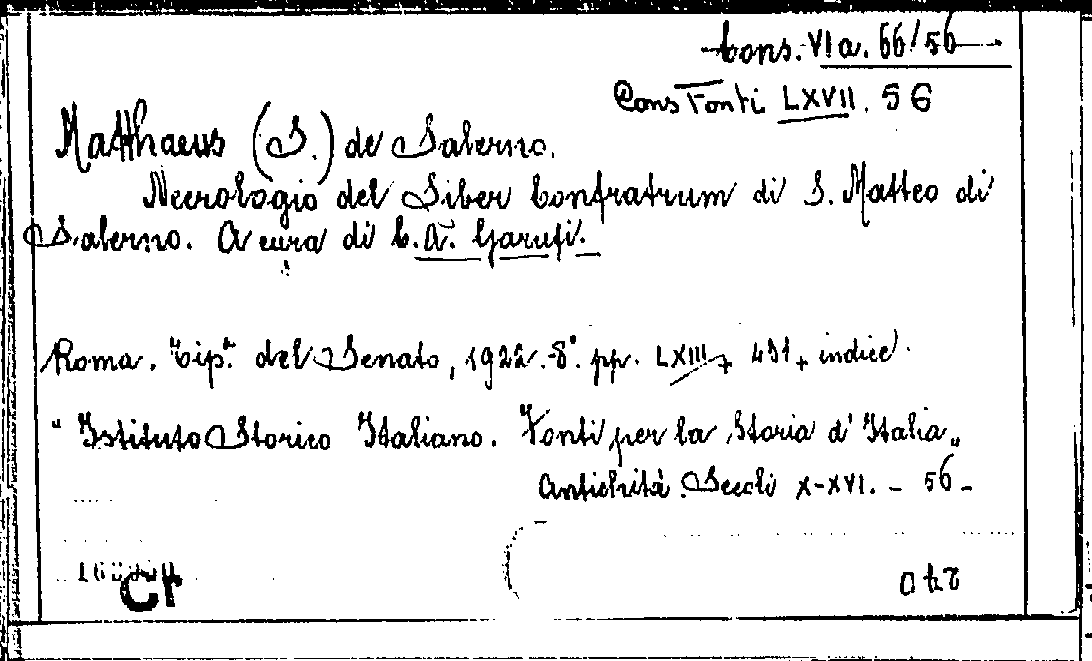 Cons. VI a. 66/56
Cons Fonti LXVII. 56
Matthaeus (S.) de Salerno.
Necrologio del Liber Confratrum di S. Matteo di
Salerno. A cura di C. A. Garufi.
Roma. Tip. del Senato, 1922. 8°. pp. LXIII + 431 + indice.
"Istituto Storico Italiano. Fonti per la Storia d'Italia„
Antichità. Secoli X-XVI. - 56 -
Cr